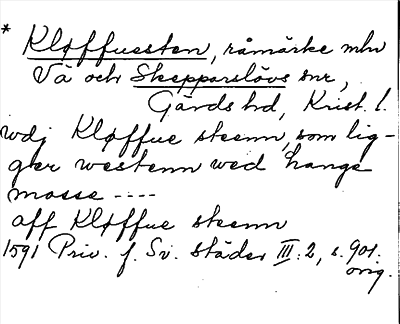 * Kløffuesten, råmärke mln
Vä och Skepparslövs snr,
Gärds hd, Krist. l.
wdj Kløffue steenn, som lig-
ger westenn wed hange
mosse ----
aff Kløffue steenn
1591 Priv. f. Sv. städer III: 2, s. 901.
orig.